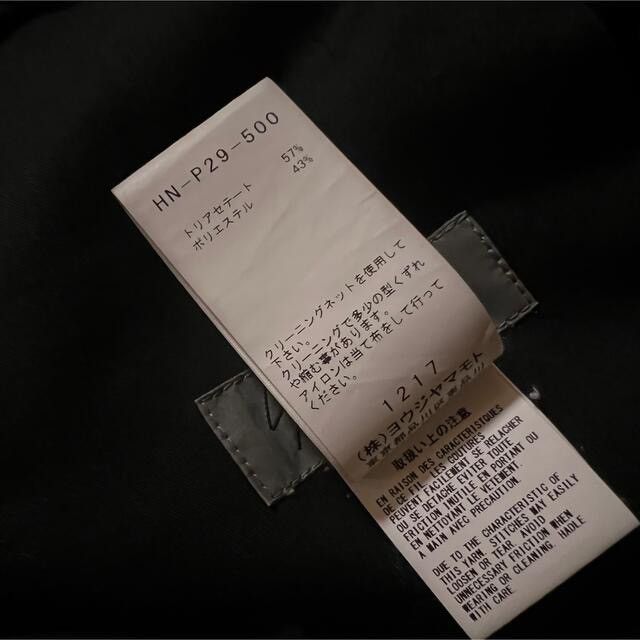 HN-P29-500
トリアセテート 57%
ポリエステル 43%
クリーニングネットを使用して
下さい。
クリーニングで多少の型くずれ
や縮む事があります。
アイロンは当て布をして行って
ください。
1217
(株)ヨウジヤマモト
取扱い上の注意
EN RAISON DES CARACTERISTIQUES
DE CE FIL LES COUTURES
PEUVENT FACILEMENT SE RELACHER
OU SE DETACHE EVITER TOUTE
FRICTION INUTILE EN PORTANT OU
EN NETTOYANT LE VETEMENT.
A MAIN AVEC PRECAUTION.
DUE TO THE CHARACTERISTIC OF
THIS YARN. STITCHES MAY EASILY
LOOSEN OR TEAR. AVOID
UNNECESSARY FRICTION WHEN
WEARING OR CLEANING. HADLE
WITH CARE